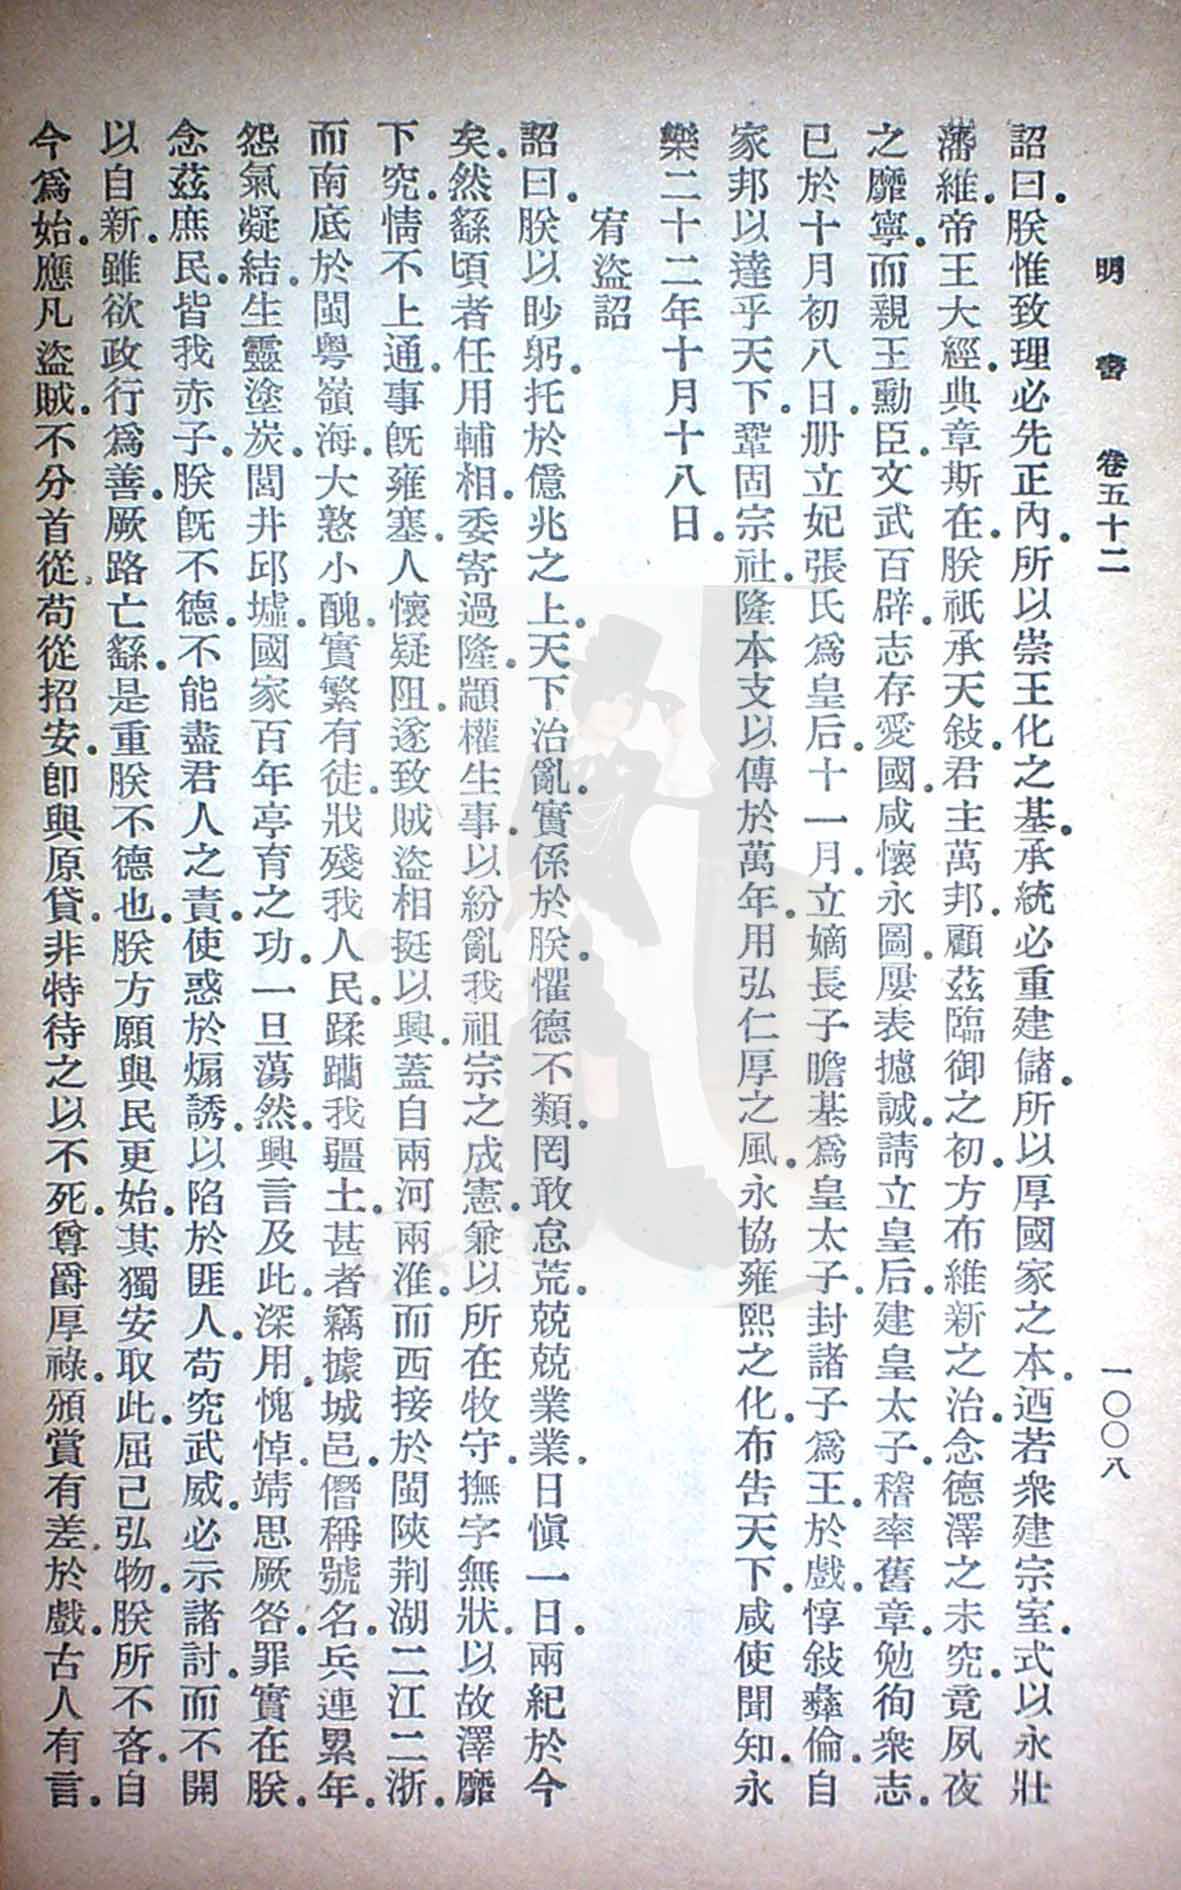 明書 卷五十二 一〇〇八
詔曰。朕惟致理必先正內。所以崇王化之基。承統必重建儲。所以厚國家之本。迺若衆建宗室。式以永壯
藩維。帝王大經。典章斯在。朕祇承天敍。君主萬邦。顧茲臨御之初。方布維新之治。念德澤之未究。竟夙夜
之靡寧。而親王勳臣。文武百辟。志存愛國。咸懷永圖。屢表攄誠。請立皇后。建皇太子。稽率舊章。勉徇衆志。
已於十月初八日。册立妃張氏爲皇后。十一月。立嫡長子瞻基爲皇太子。封諸子爲王。於戲。惇敍彝倫。自
家邦以達乎天下。鞏固宗社。隆本支以傳於萬年。用弘仁厚之風。永協雍熙之化。布告天下。咸使聞知。永
樂二十二年十月十八日。
宥盜詔
詔曰。朕以眇躬。托於億兆之上。天下治亂。實係於朕。懼德不類。罔敢怠荒。兢兢業業。日愼一日。兩紀於今
矣。然繇頃者任用輔相。委寄過隆。顓權生事。以紛亂我祖宗之成憲。兼以所在牧守。撫字無狀。以故澤靡
下究。情不上通。事旣雍塞。人懷疑阻。遂致賊盜相挺以興。蓋自兩河兩淮。而西接於閩陝荆湖二江二浙。
而南底於閩粤嶺海。大憝小醜。實繁有徒。狀殘我人民。蹂躪我疆土。甚者竊據城邑。僭稱號名。兵連累年。
怨氣凝結。生靈塗炭。閭井邱墟。國家百年亭育之功。一旦蕩然。興言及此。深用愧悼。靖思厥咎。罪實在朕。
念茲庶民。皆我赤子。朕旣不德。不能盡君人之責。使惑於煽誘。以陷於匪人。苟究武威。必示諸討。而不開
以自新。雖欲政行爲善。厥路亡繇。是重朕不德也。朕方願與民更始。其獨安取此。屈己弘物。朕所不吝。自
今爲始。應凡盜賊。不分首從。苟從招安。卽與原貸。非特待之以不死。尊爵厚祿。頒賞有差。於戲。古人有言。